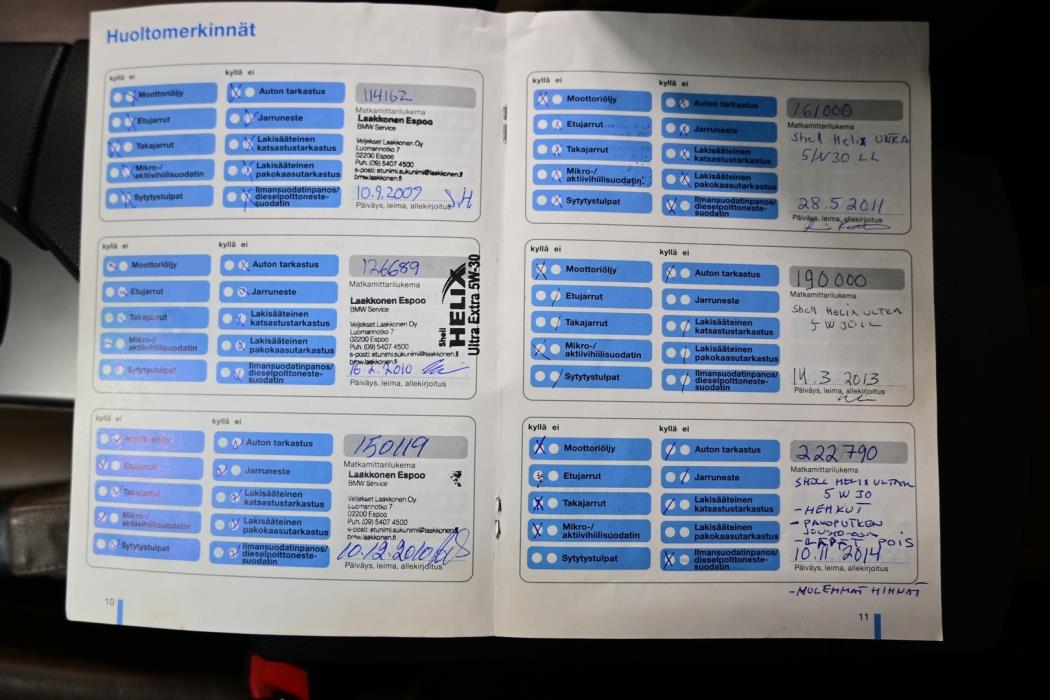 Huoltomerkinnät
kyllä ei
kyllä ei
Moottoriöljy
Etujarrut
Takajarrut
Mikro-/
aktiivihiilisuodatin
Sytytystulpat
Auton tarkastus
Jarruneste
Lakisääteinen
katsastustarkastus
Lakisääteinen
pakokaasutarkastus
Ilmansuodatinpanos/
dieselpolttoneste-
suodatin
114162
Matkamittarilukema
Laakkonen Espoo
BMW Service
Veljekset Laakkonen Oy
Luomannotko 7
02200 Espoo
Puh. (09) 5407 4500
s-posti: etunimi.sukunimi@laakkonen.fi
bmw.laakkonen.fi
10.9.2009
Päiväys, leima, allekirjoitus
kyllä ei
kyllä ei
Moottoriöljy
Etujarrut
Takajarrut
Mikro-/
aktiivihiilisuodatin
Sytytystulpat
Auton tarkastus
Jarruneste
Lakisääteinen
katsastustarkastus
Lakisääteinen
pakokaasutarkastus
Ilmansuodatinpanos/
dieselpolttoneste-
suodatin
126689
Matkamittarilukema
Laakkonen Espoo
BMW Service
Veljekset Laakkonen Oy
Luomannotko 7
02200 Espoo
Puh. (09) 5407 4500
s-posti: etunimi.sukunimi@laakkonen.fi
bmw.laakkonen.fi
16.2.2010
Päiväys, leima, allekirjoitus
Shell
HELIX
Ultra Extra 5W-30
kyllä ei
kyllä ei
Moottoriöljy
Etujarrut
Takajarrut
Mikro-/
aktiivihiilisuodatin
Sytytystulpat
Auton tarkastus
Jarruneste
Lakisääteinen
katsastustarkastus
Lakisääteinen
pakokaasutarkastus
Ilmansuodatinpanos/
dieselpolttoneste-
suodatin
150119
Matkamittarilukema
Laakkonen Espoo
BMW Service
Veljekset Laakkonen Oy
Luomannotko 7
02200 Espoo
Puh. (09) 5407 4500
s-posti: etunimi.sukunimi@laakkonen.fi
bmw.laakkonen.fi
10.12.2010
Päiväys, leima, allekirjoitus
10
kyllä ei
kyllä ei
Moottoriöljy
Etujarrut
Takajarrut
Mikro-/
aktiivihiilisuodatin
Sytytystulpat
Auton tarkastus
Jarruneste
Lakisääteinen
katsastustarkastus
Lakisääteinen
pakokaasutarkastus
Ilmansuodatinpanos/
dieselpolttoneste-
suodatin
161000
Matkamittarilukema
Shell Helix ULTRA
5W30 LL
28.5.2011
Päiväys, leima, allekirjoitus
kyllä ei
kyllä ei
Moottoriöljy
Etujarrut
Takajarrut
Mikro-/
aktiivihiilisuodatin
Sytytystulpat
Auton tarkastus
Jarruneste
Lakisääteinen
katsastustarkastus
Lakisääteinen
pakokaasutarkastus
Ilmansuodatinpanos/
dieselpolttoneste-
suodatin
190000
Matkamittarilukema
Shell HELIX ULTRA
5W30LL
3 2013
Päiväys, leima, allekirjoitus
kyllä ei
kyllä ei
Moottoriöljy
Etujarrut
Takajarrut
Mikro-/
aktiivihiilisuodatin
Sytytystulpat
Auton tarkastus
Jarruneste
Lakisääteinen
katsastustarkastus
Lakisääteinen
pakokaasutarkastus
Ilmansuodatinpanos/
dieselpolttoneste-
suodatin
222790
Matkamittarilukema
SHELL HELIX ULTRA
5W30
- HEHKUT
- PAKOPUTKEN
POIS
10.11.2014
Päiväys, leima, allekirjoitus
- MOLEMMAT HIHNAT
11